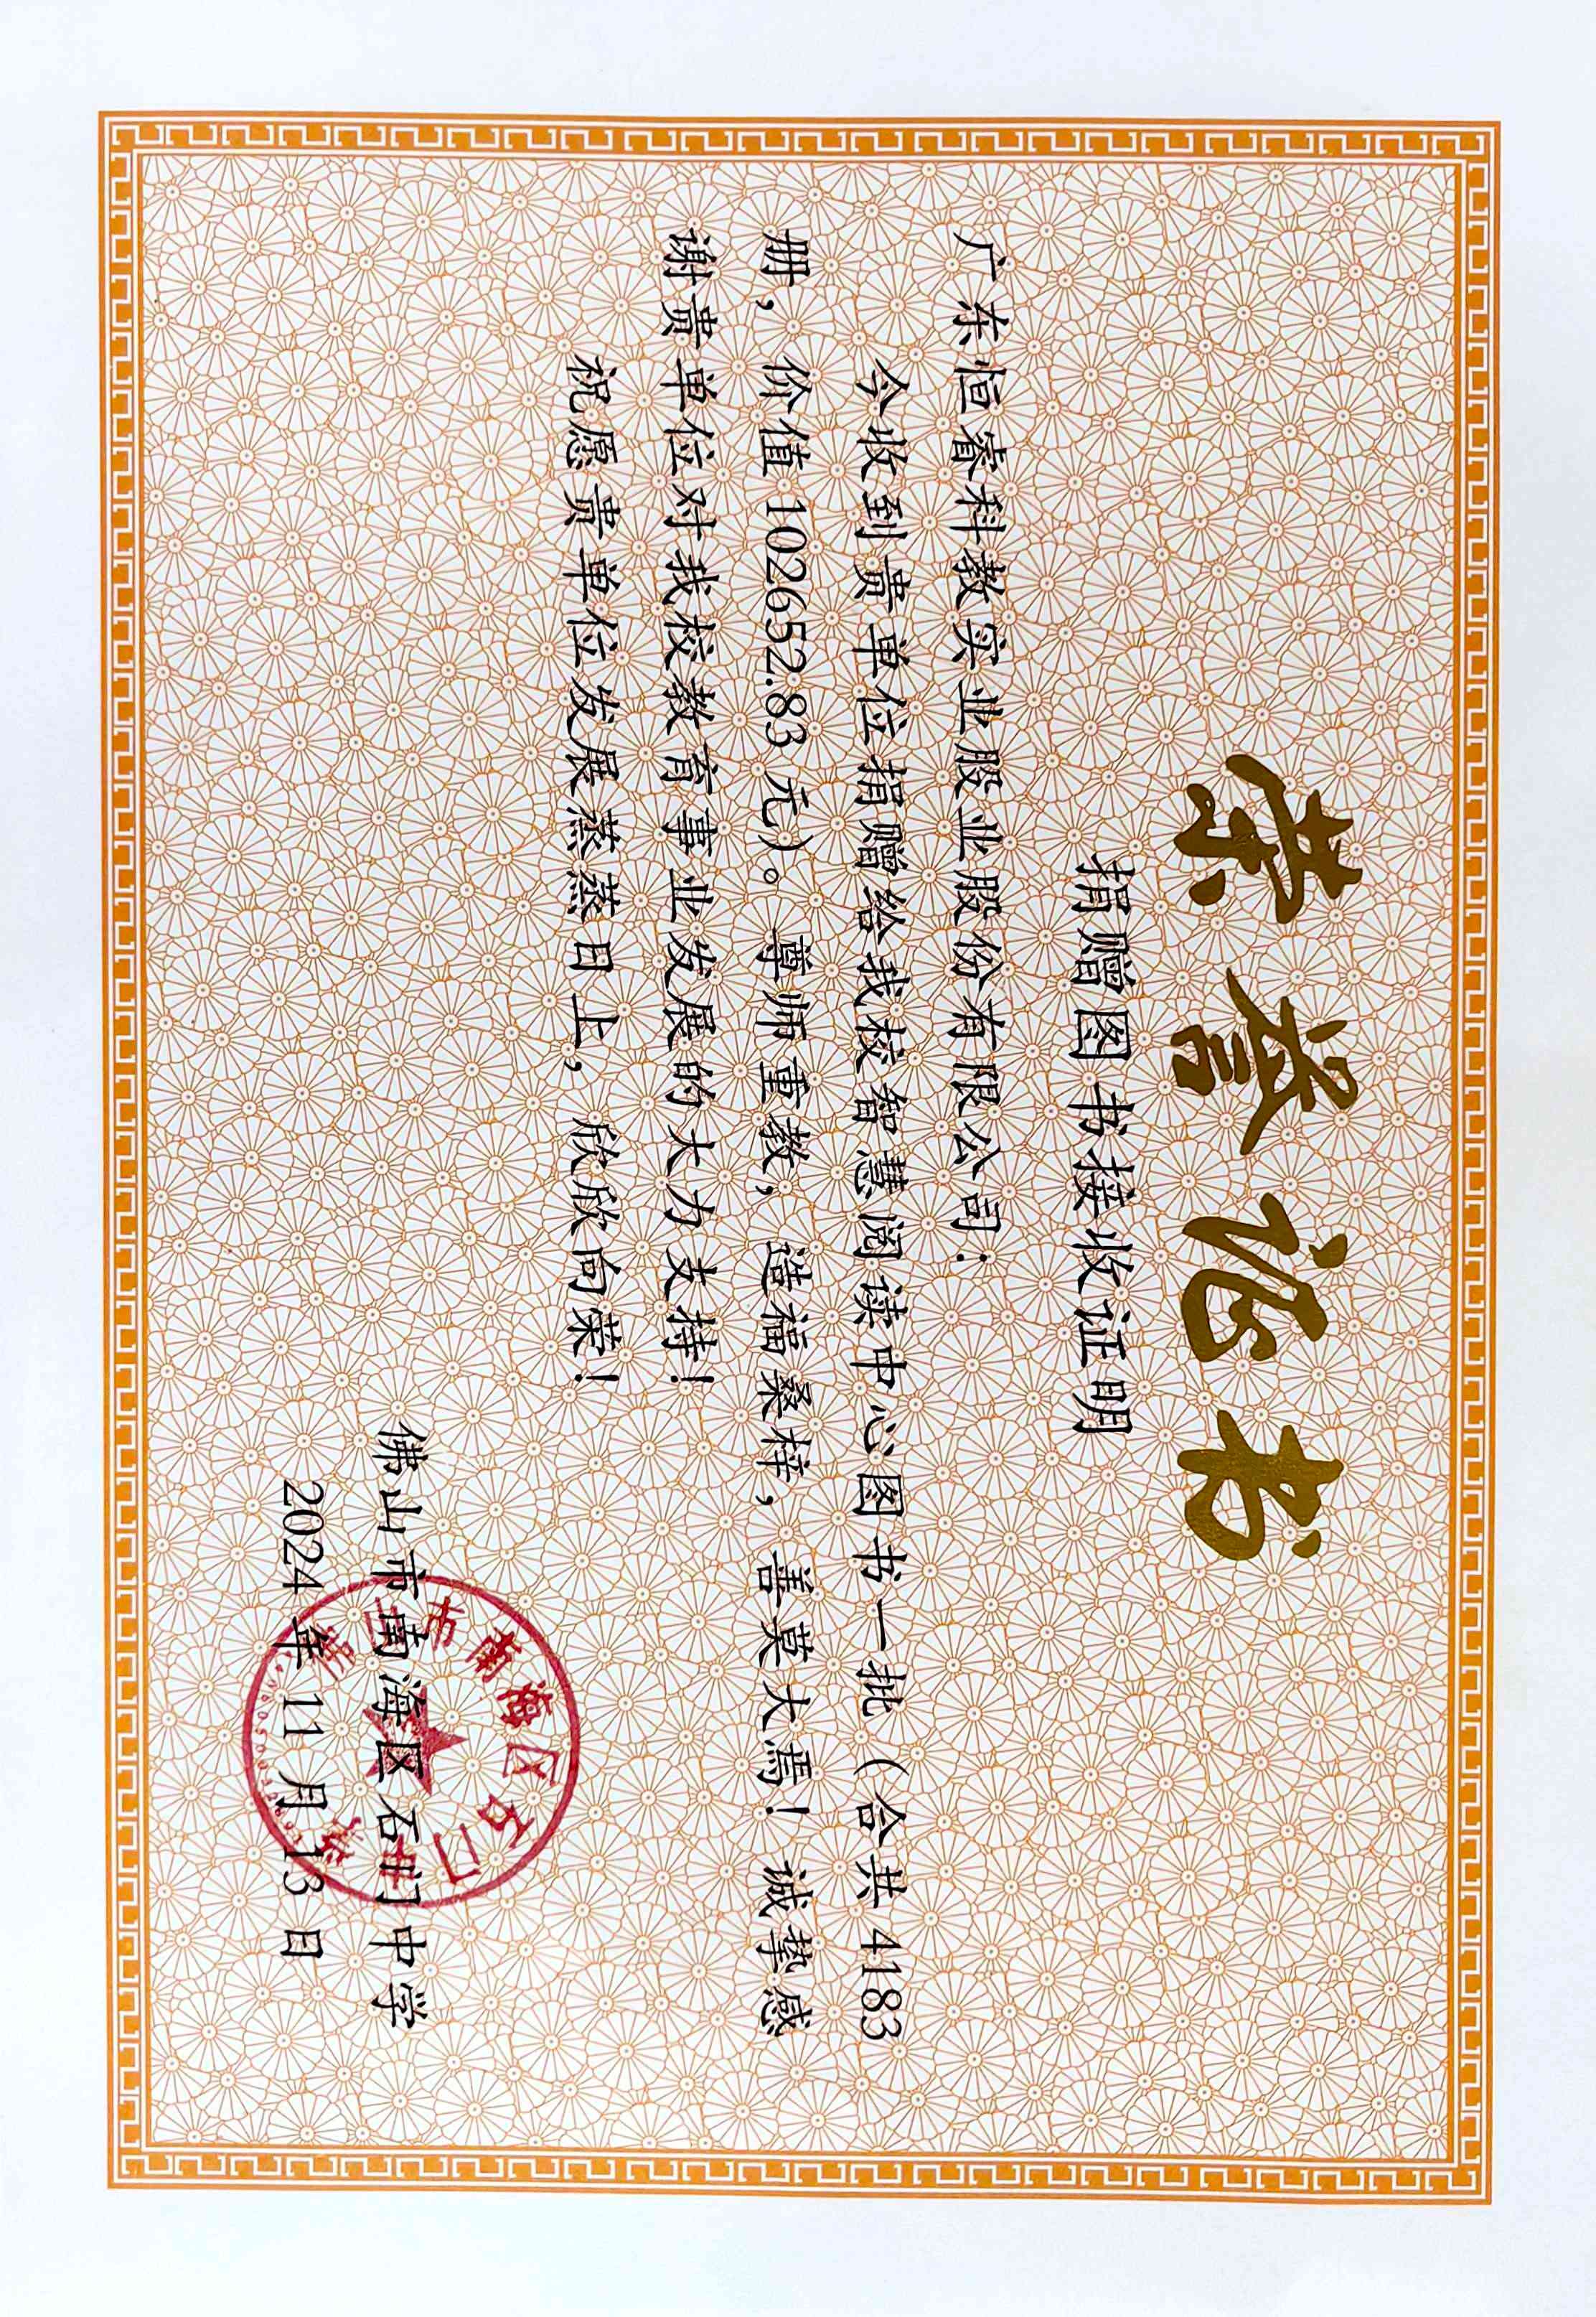 荣誉证书
捐赠图书接收证明
广东恒睿科教实业股业股份有限公司：
今收到贵单位捐赠给我校智慧阅读中心图书一批（合共 4183
册，价值 102652.83 元）。尊师重教，造福桑梓，善莫大焉！诚挚感
谢贵单位对我校教育事业发展的大力支持！
祝愿贵单位发展蒸蒸日上，欣欣向荣！
佛山市南海区石门中学
2024 年 11 月 13 日
佛山市南海区石门中学